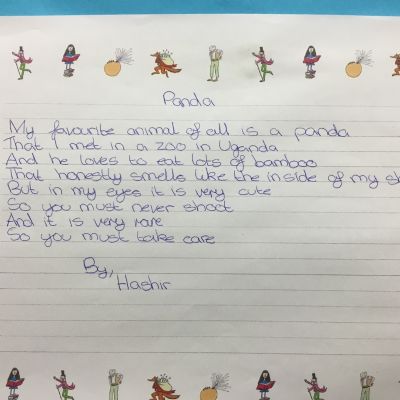 Panda
My favourite animal of all is a panda
That I met in a zoo in Uganda
And he loves to eat lots of bamboo
That honestly smells like the inside of my
But in my eyes it is very cute
So you must never shoot
And it is very rare
So you must take care
By,
Hashir